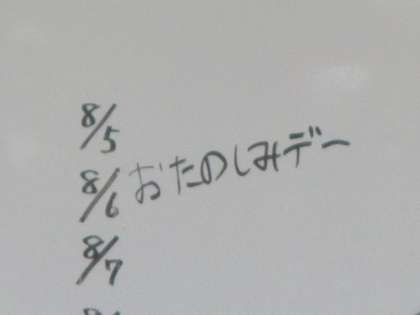 8/5
8/6 おたのしみデー
8/7